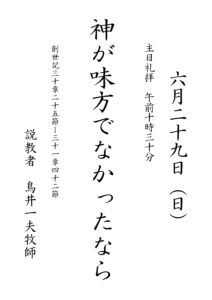 六月二十九日（日）
主日礼拝　午前十時三十分
神が味方でなかったなら
創世記三十章二十五節－三十一章四十二節
説教者　鳥井一夫牧師